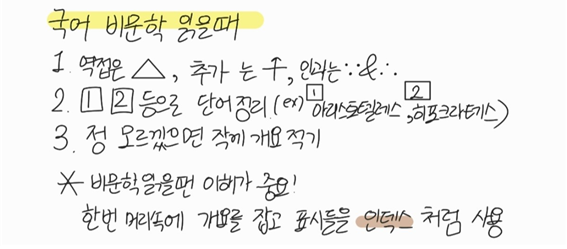 국어 비문학 읽을때
1. 역접은 △, 추가 는 ↑, 인과는 ∵&∴
2. 1 2 등으로 단어정리 (ex) 1 아리스토텔레스, 2 히포크라테스)
3. 정 모르겠으면 작에 개요적기
* 비문학읽을땐 이해가 중요!
한번 머리속에 개요를 잡고 표시들을 인덱스 처럼 사용